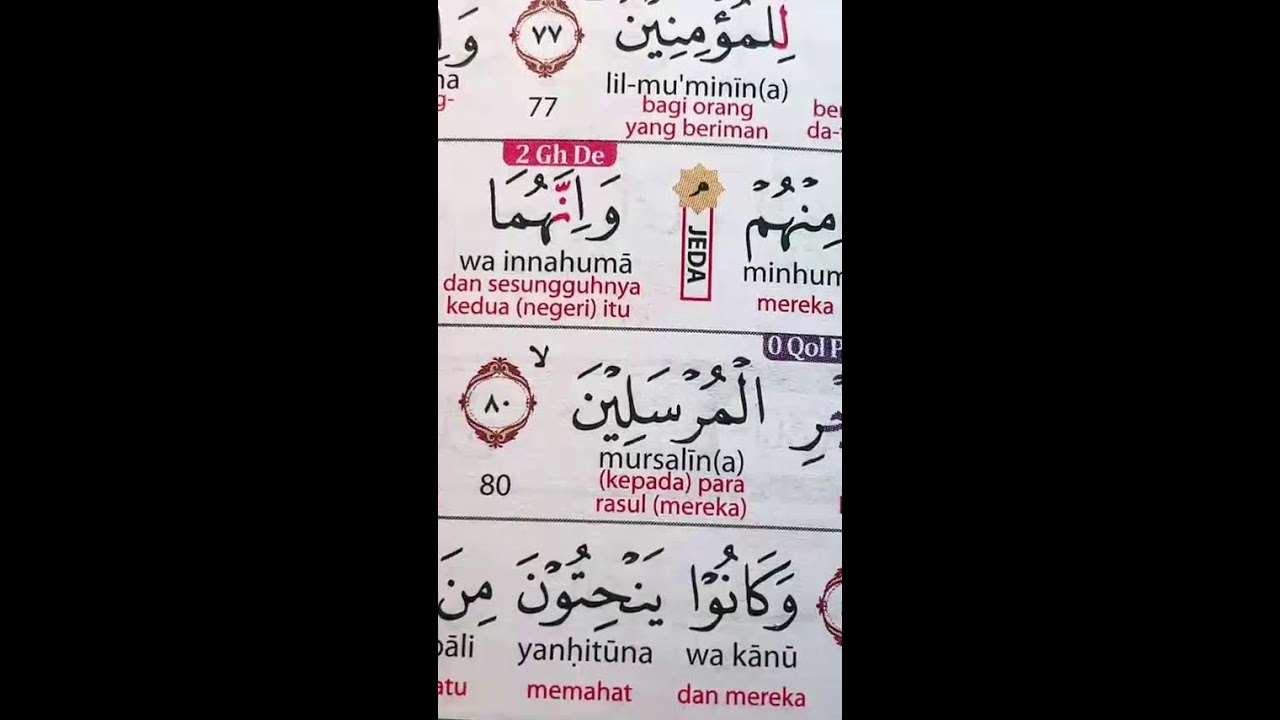 لِلْمُؤْمِنِيْنَ ٧٧
lil-mu'minīn(a)
77
bagi orang
yang beriman
2 Gh De
مِنْهُمْ ۘ وَاِنَّهُمَا
JEDA
minhum
wa innahumā
mereka
dan sesungguhnya
kedua (negeri) itu
0 Qol
الْمُرْسَلِيْنَ ۙ ٨٠
mursalīn(a)
80
(kepada) para
rasul (mereka)
وَكَانُوْا يَنْحِتُوْنَ مِنَ
wa kānū yanḥitūna
dan mereka memahat